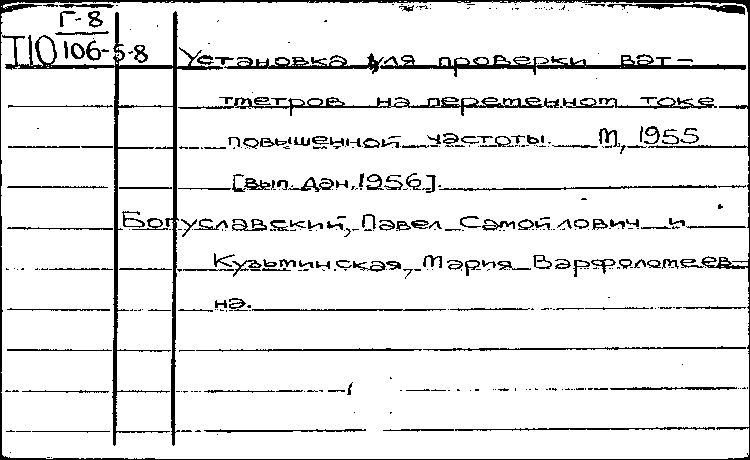 Г-8
Т10 106-5-8
Установка для проверки ват-
тметров на переменном токе
повышенной частоты. М, 1955
[вып. дан. 1956].
Богуславский, Павел Самойлович и
Кузьминская, Мария Варфоломеев-
на.